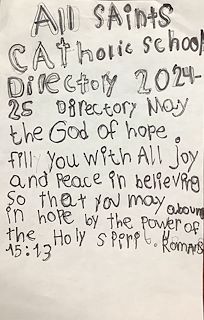 All Saints
Catholic School
Directory 2024-
25 Directory May
the God of hope
fill you with All joy
and Peace in believing
so that you may abound
in hope by the power of
the Holy Spirit." Romans
15:13